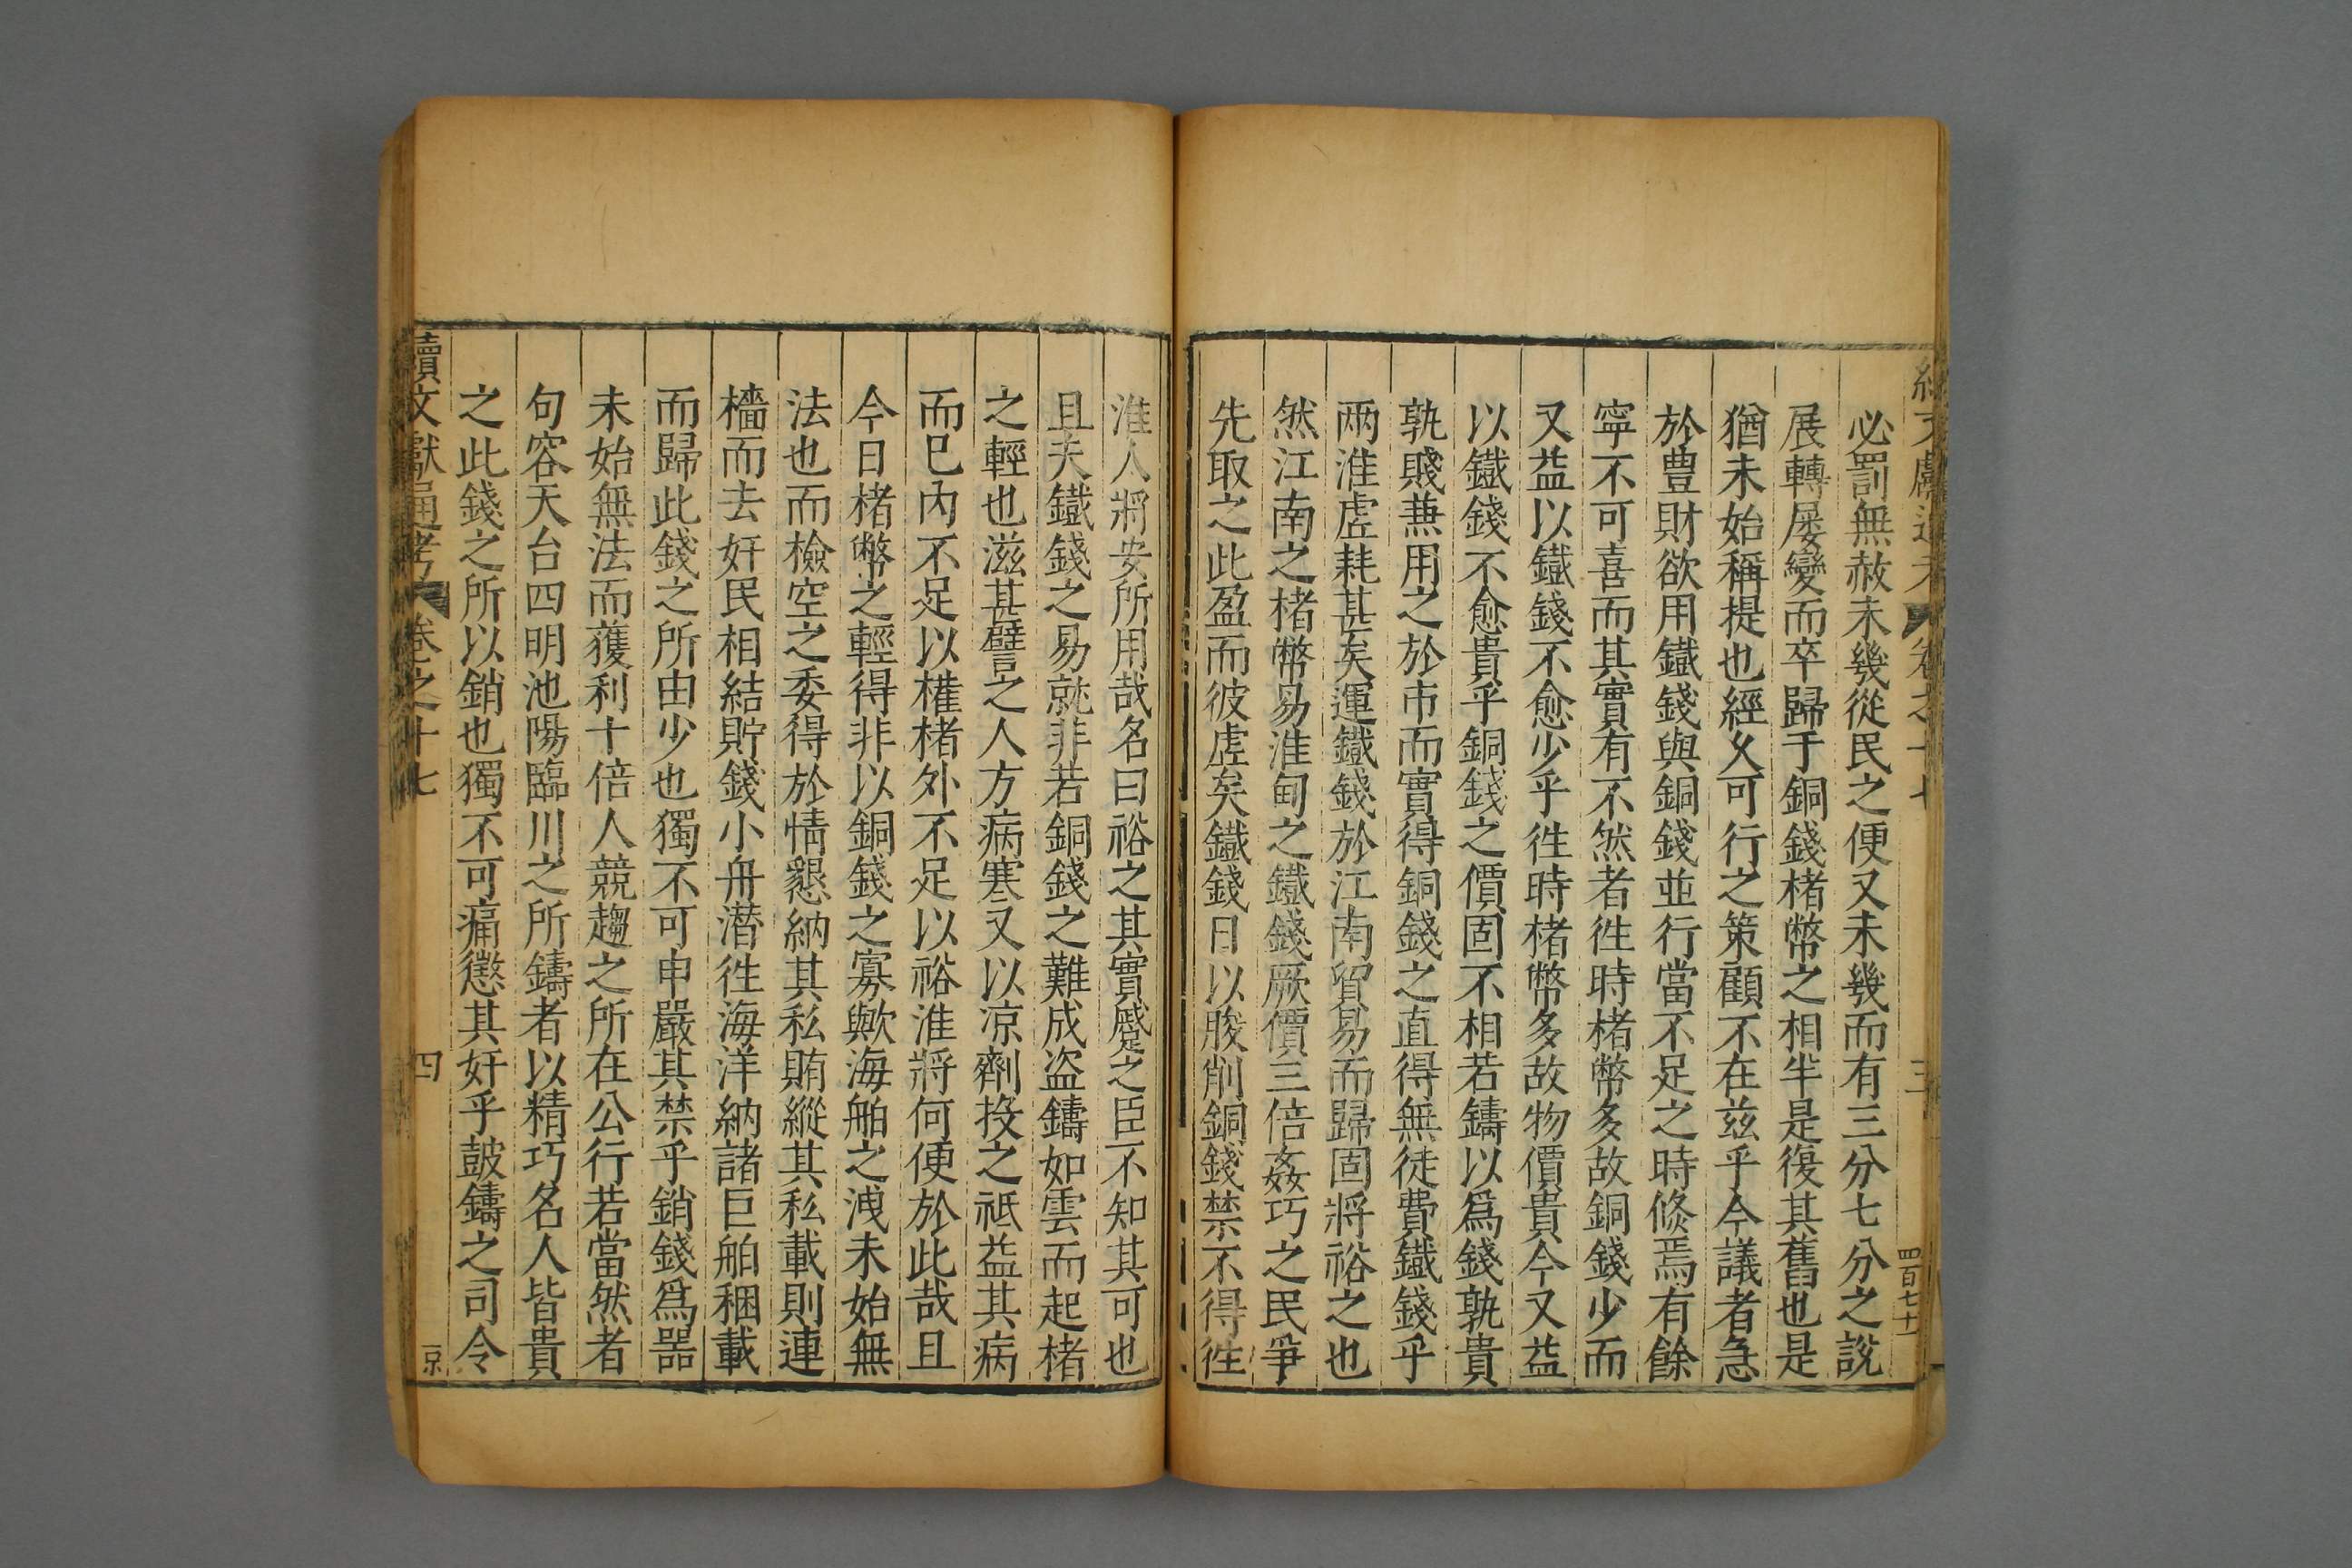 必罰無赦未幾從民之便又未幾而有三分七分之說
展轉屡變而卒歸于銅錢楮幣之相半是復其舊也是
猶未始稱提也經久可行之策顧不在兹乎今議者急
於豊財欲用鐵錢與銅錢並行當不足之時倐焉有餘
寜不可喜而其實有不然者徃時楮幣多故銅錢少而
又益以鐵錢不愈少乎徃時楮幣多故物價貴今又益
以鐵錢不愈貴乎銅錢之價固不相若鑄以爲錢孰貴
孰賤兼用之於市而實得銅錢之直得無徒費鐵錢乎
兩淮虗耗甚矣運鐵錢於江南貿易而歸固將裕之也
然江南之楮幣易淮甸之鐵錢厥價三倍姦巧之民爭
先取之此盈而彼虗矣鐵錢日以朘削銅錢禁不得徃
淮人將安所用哉名曰裕之其實蹙之臣不知其可也
且夫鐵錢之易就非若銅錢之難成盗鑄如雲而起楮
之輕也滋甚譬之人方病寒又以凉劑投之祗益其病
而巳内不足以權楮外不足以裕淮將何便於此哉且
今日楮幣之輕得非以銅錢之寡歟海舶之洩未始無
法也而檢空之委得於情懇納其私賄縱其私載則連
檣而去奸民相結貯錢小舟潜徃海洋納諸巨舶稛載
而歸此錢之所由少也獨不可申嚴其禁乎銷錢爲噐
未始無法而獲利十倍人競趨之所在公行若當然者
句容天台四明池陽臨川之所鑄者以精巧名人皆貴
之此錢之所以銷也獨不可痛懲其奸乎鼓鑄之司令
續文獻通考 卷之十七 四 京